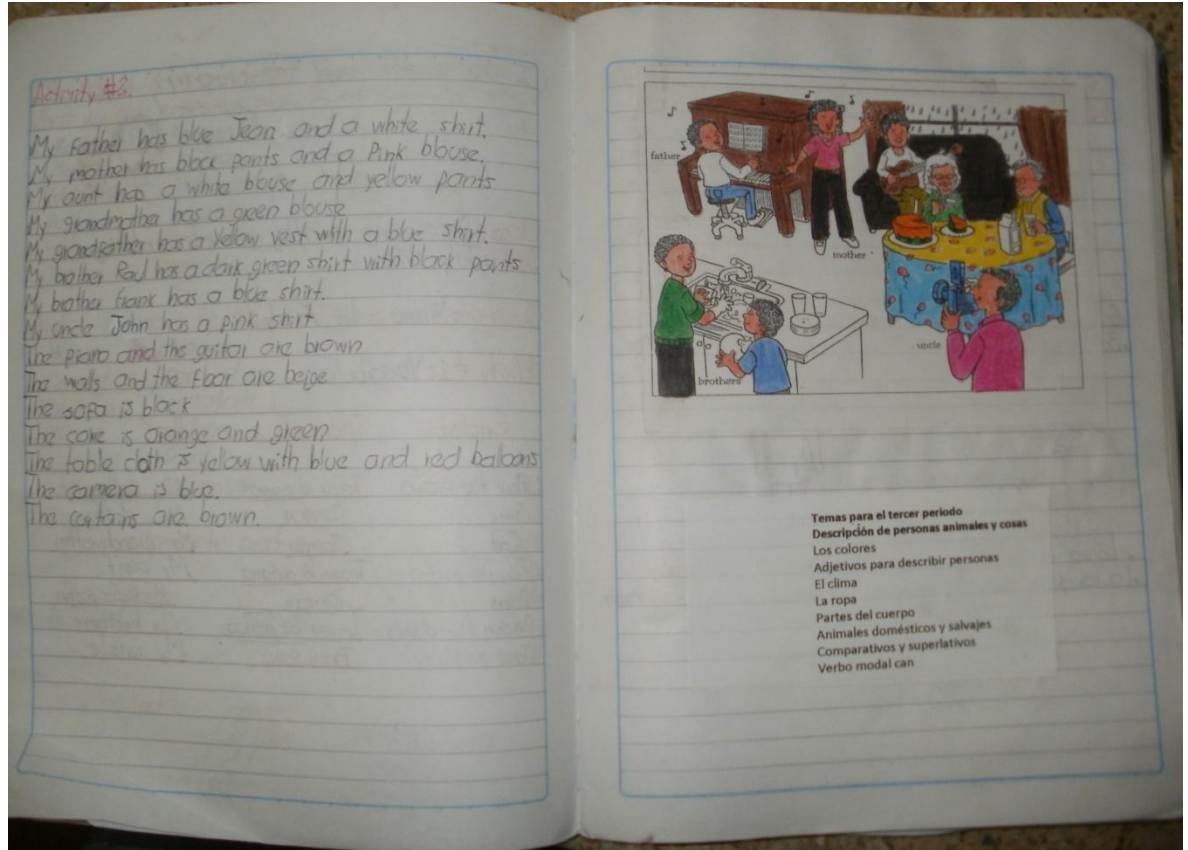 Activity #2.
My Father has blue Jean and a white shirt.
My mother has black pants and a Pink blouse.
My aunt has a white blouse and yellow pants
My grandmother has a green blouse
My grandfather has a Yellow vest with a blue shirt.
My brother Raul has a dark green shirt with black pants
My brother frank has a blue shirt.
My uncle John has a pink shirt
The piano and the guitar are brown
The walls and the floor are beige
The sofa is black
The cake is orange and green
The table cloth is yellow with blue and red baloons
The camera is blue.
The cortains are brown.
father
mother
uncle
brothers
Temas para el tercer periodo
Descripción de personas animales y cosas
Los colores
Adjetivos para describir personas
El clima
La ropa
Partes del cuerpo
Animales domésticos y salvajes
Comparativos y superlativos
Verbo modal can